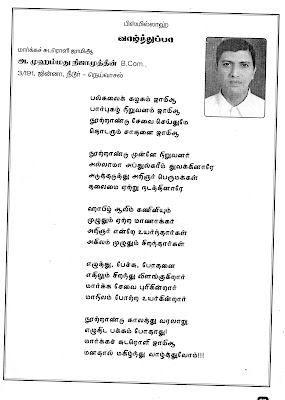 பிஸ்மில்லாஹ்
வாழ்த்துப்பா
மார்க்கச் சுடரொளி ஜாமிஆ
அ. முஹம்மது நிஜாமுத்தீன் B.Com.,
3/191, ஜின்னா, நீடூர் - நெய்வாசல்
பல்கலைக் கழகம் ஜாமிஆ
பார்புகழ் நிறுவனம் ஜாமிஆ
நூற்றாண்டு சேவை செய்துமே
தொடரும் சாதனை ஜாமிஆ
நூற்றாண்டு முன்னே நிறுவனர்
அல்லாமா அப்துல்கரீம் துவக்கினாரே
அடுத்தடுத்து அறிஞர் பெருமக்கள்
தலைமை ஏற்று நடத்தினாரே
ஹாபிழ் ஆலிம் கணினியும்
முழுதும் ஏற்ற மாணாக்கர்
அறிஞர் என்றே உயர்ந்தார்கள்
அகிலம் முழுதும் சிறந்தார்கள்
எழுத்து, பேச்சு, போதனை
எதிலும் சிறந்து விளங்குகிறார்
மார்க்க சேவை புரிகின்றார்
மாநிலம் போற்ற உயர்கின்றார்
நூற்றாண்டு காலத்து வரலாறு
எழுதிட பக்கம் போதாது!
மார்க்கச் சுடரொளி ஜாமிஆ
மனதால் மகிழ்ந்து வாழ்த்துவோம்!!!